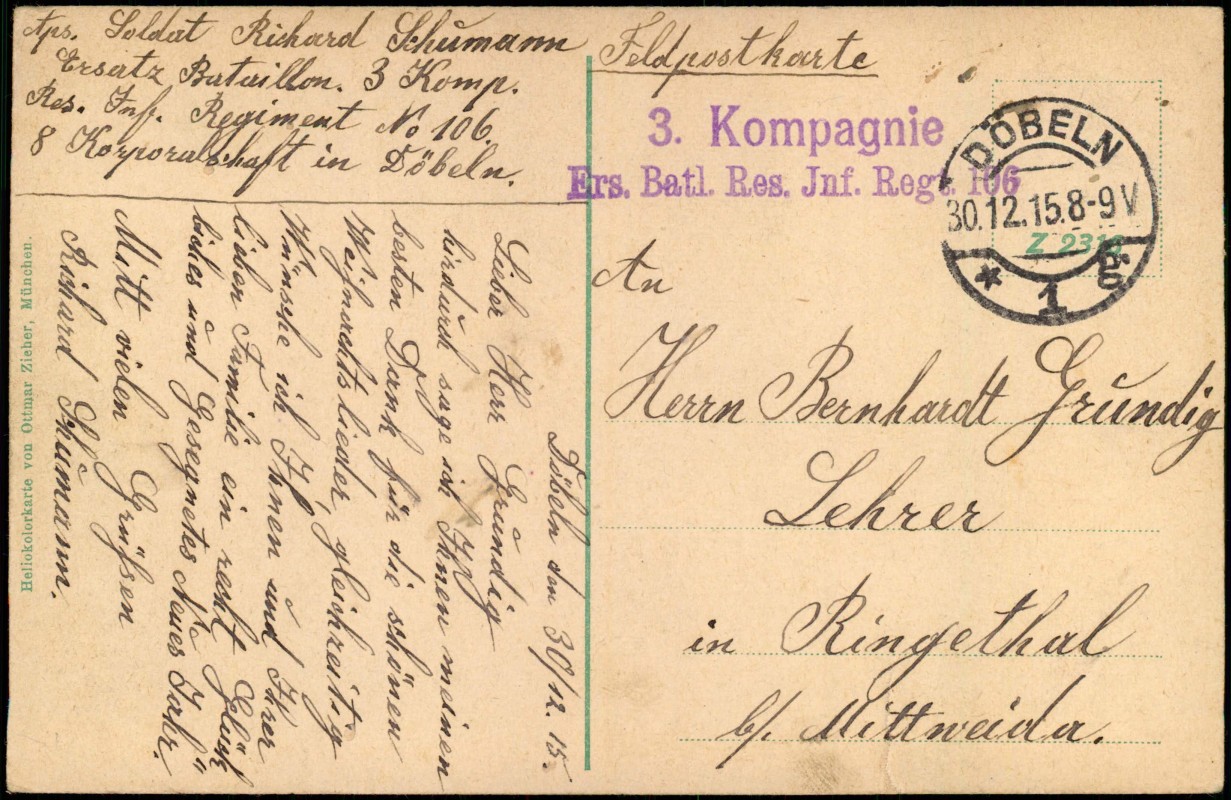 Aps. Soldat Richard Schumann
Ersatz Bataillon. 3 Komp.
Res. Inf. Regiment No 106.
8 Korporalschaft in Döbeln.
Feldpostkarte
3. Kompagnie
Ers. Batl. Res. Jnf. Regt. 106
DÖBELN
30.12.15.8-9V
* 1
Z 2316
An
Herrn Bernhardt Grundig
Lehrer
in Ringethal
b/. Mittweida.
Döbeln den 30/12. 15.
Lieber Herr Grundig
hirdurch sage ich Ihnen meinen
besten Dank für die schönen
Weihnachtslieder, gleichzeitig
Wünsche ich Ihnen und Ihrer
lieben Familie ein recht Glück-
liches und Gesegnetes Neues Jahr.
Mitt vielen Grüßen
Richard Schumann.
Heliokolorkarte von Ottmar Zieher, München.